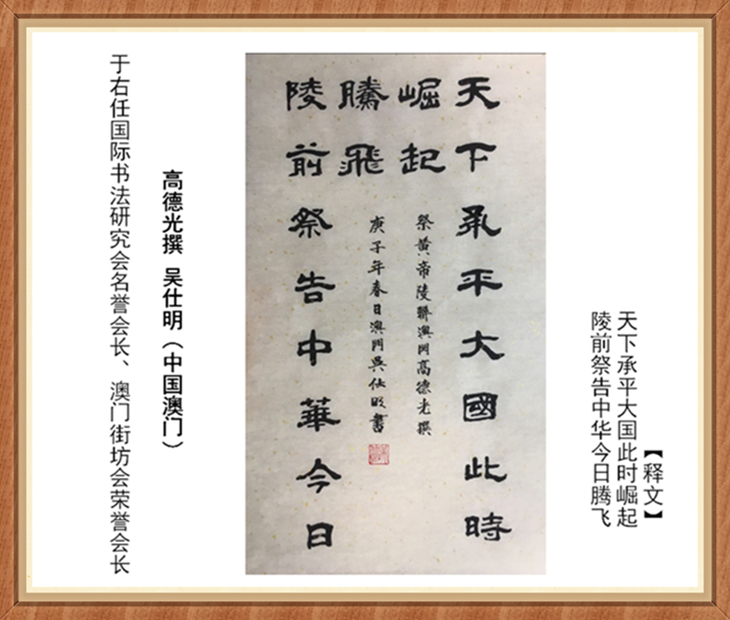 【释文】
天下承平大国此时崛起
陵前祭告中华今日腾飞
天下承平大國此時
崛起
陵前祭告中華今日
騰飛
祭黃帝陵聯澳門高德光撰
庚子年春日澳門吳仕明書
高德光撰 吴仕明（中国澳门）
于右任国际书法研究会名誉会长、澳门街坊会荣誉会长